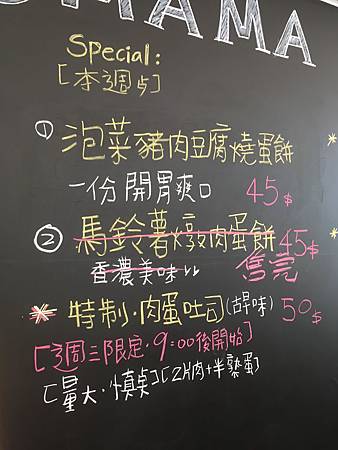 OMAMA
Special:
[本週点]
① 泡菜豬肉豆腐燒蛋餅
一份開胃爽口 45$
② 馬鈴薯燉肉蛋餅 45$
香濃美味 售完
* 特制·肉蛋吐司(古早味) 50$
[週三限定·9:00後開始]
[量大·慎点][2片肉+半熟蛋]